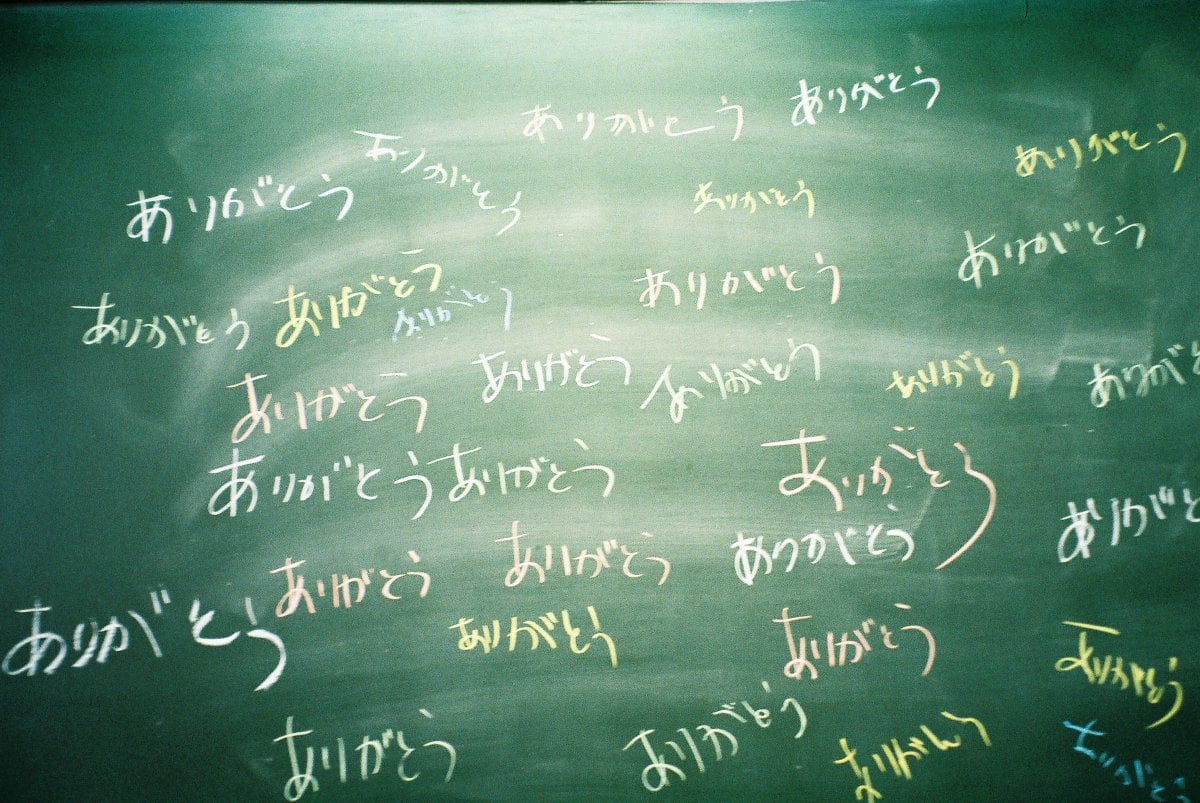 ありがとう
ありがとう
ありがとう
ありがとう
ありがとう
ありがとう
ありがとう
ありがとう
ありがとう
ありがとう
ありがとう
ありがとう
ありがとう
ありがとう
ありがと
ありがとう
ありがとう
ありがとう
ありがとう
ありがと
ありがとう
ありがとう
ありがとう
ありがとう
ありがとう
ありがとう
ありがとう
ありがとう
ありがとう
ありがとう
ありがとう